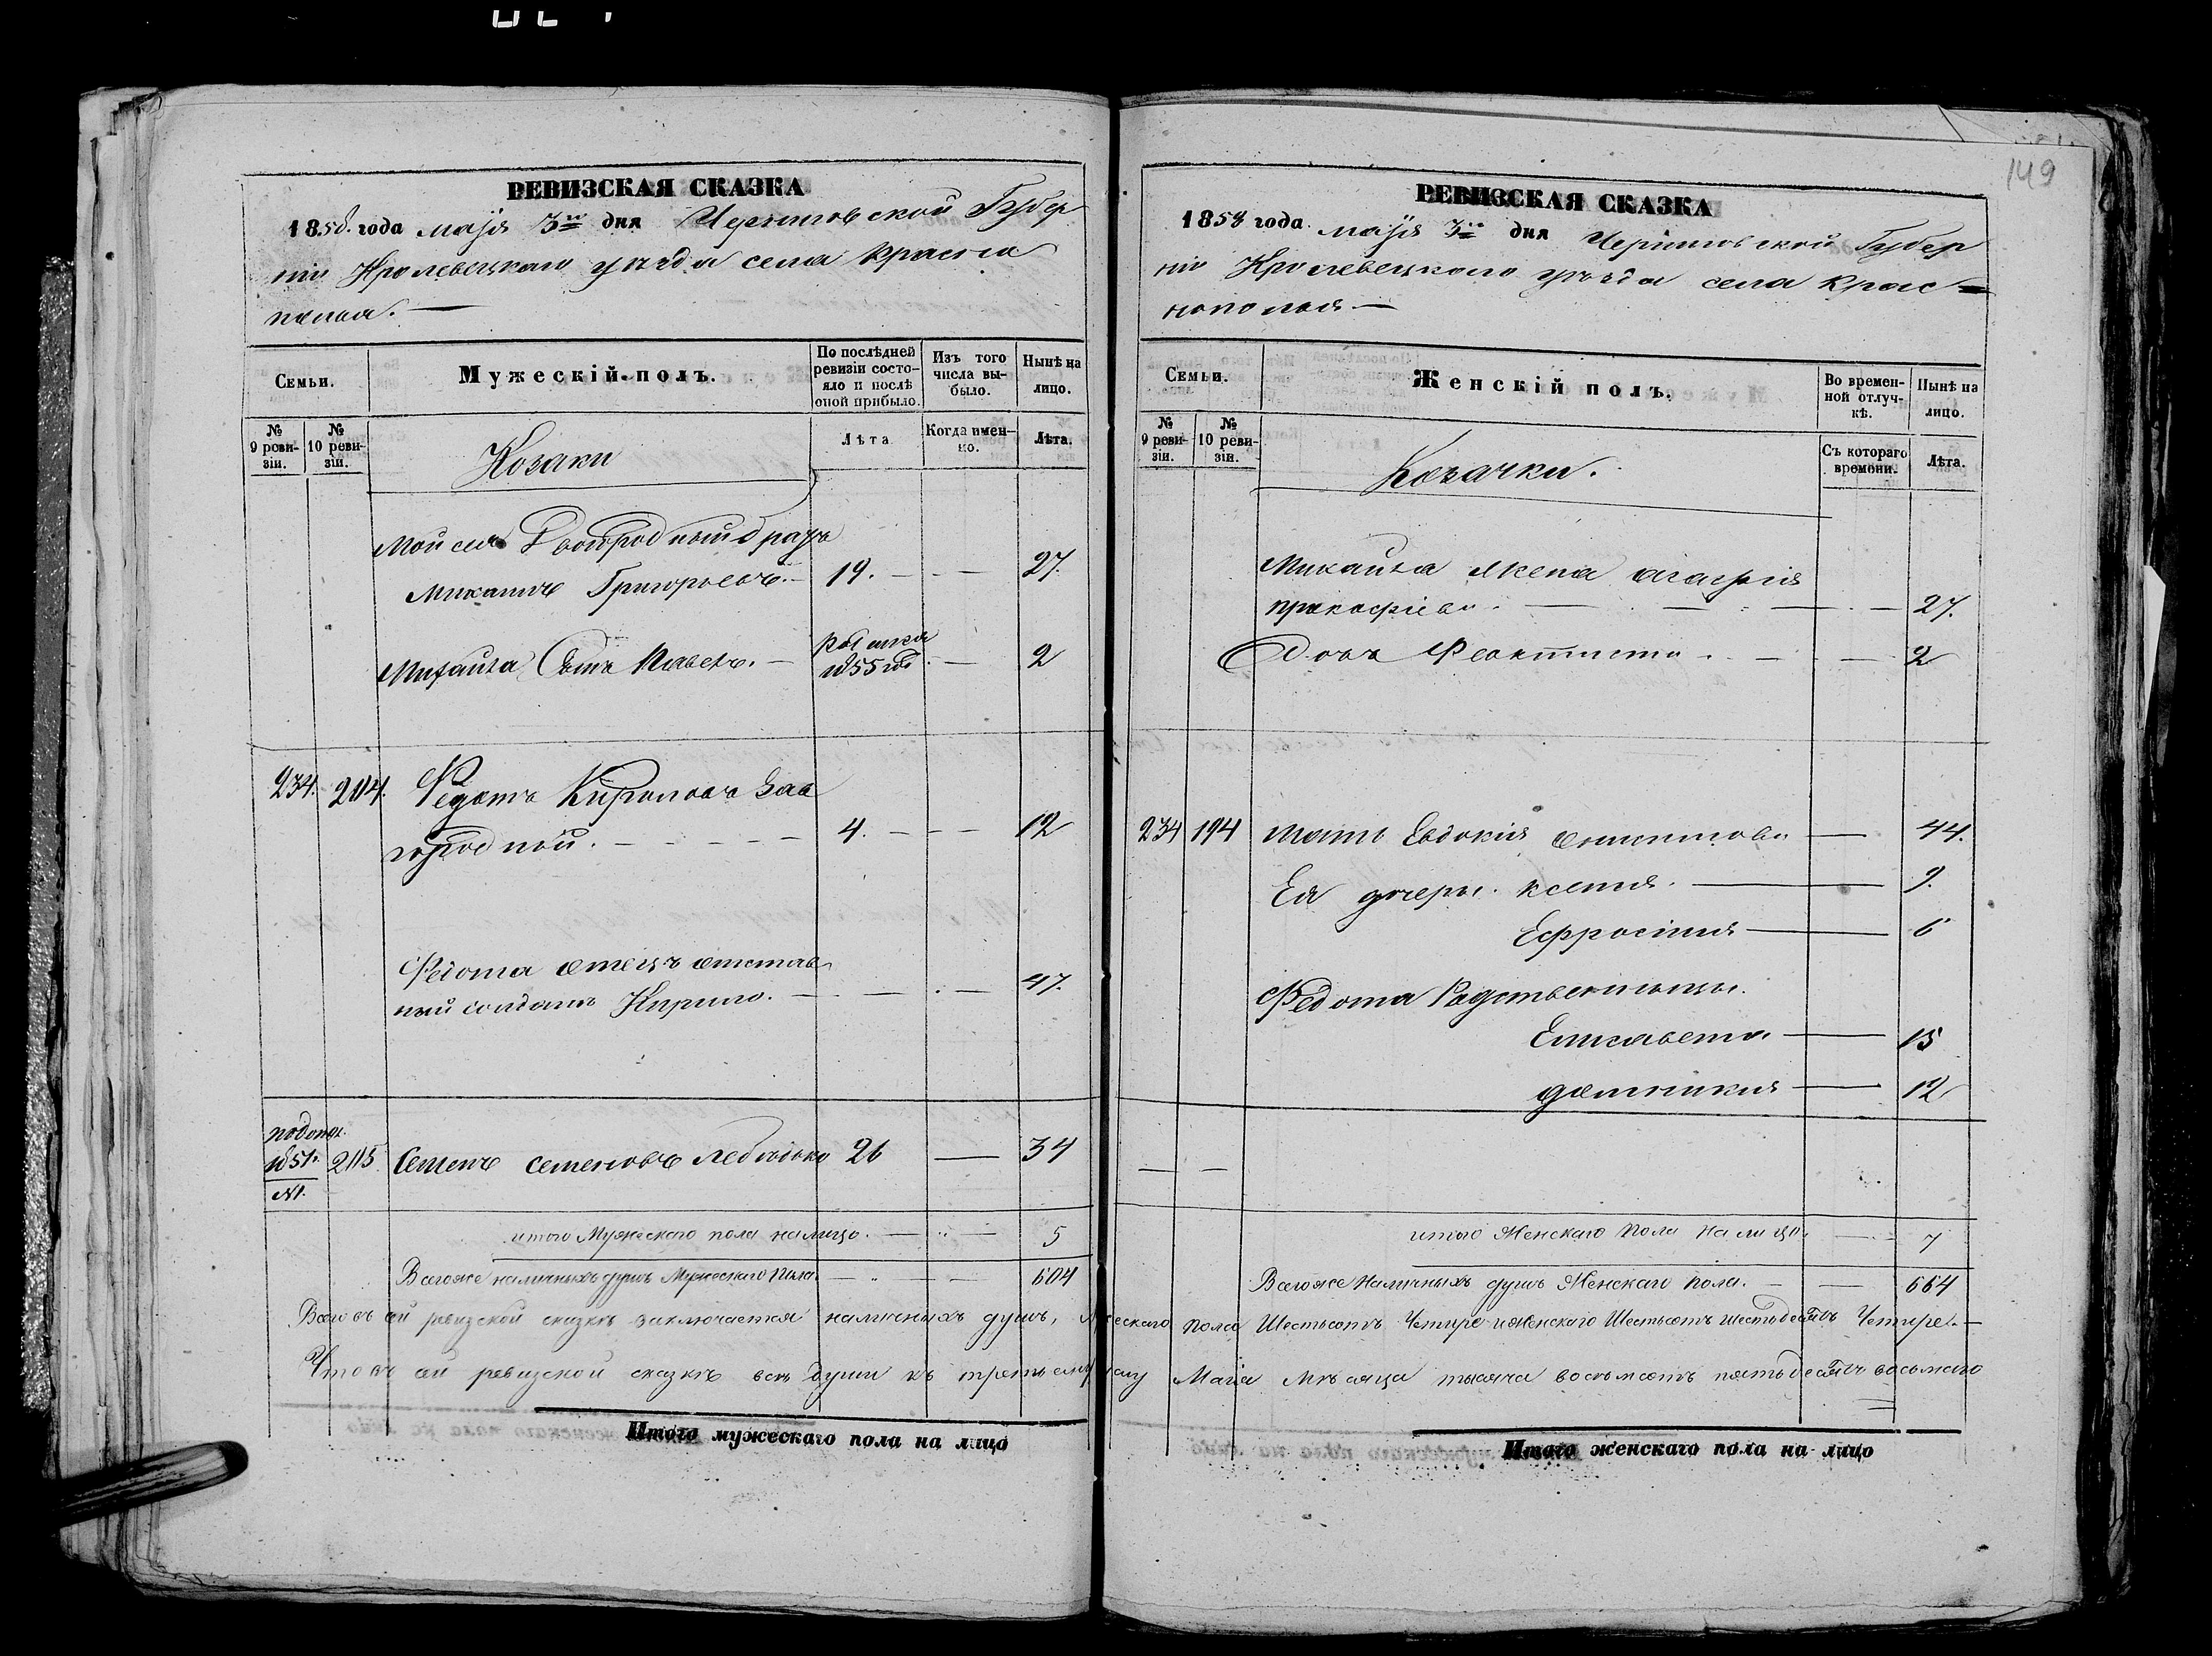 149
РЕВИЗСКАЯ СКАЗКА
1858. года маія 3го дня Черниговской Губер
ніи Кролевецкаго уѣзда села Красно
полья. —
Семьи.
Мужескій полъ.
По послѣдней ревизіи состояло и послѣ оной прибыло.
Изъ того числа выбыло.
Нынѣ на лицо.
№ 9 ревизіи.
№ 10 ревизіи.
Козаки
Лѣта
Когда именно.
Лѣта.
Мойсея Двоюродный братъ
Михаилъ Григорьевъ. — 19. — — 27.
Михаила Сынъ Павелъ. — 1855 — 2
234. 204. Федотъ Кириловъ Заа
городной. — 4. — — 12
Федота отецъ отстав
ный солдатъ Кирило. — — . — 47.
1851. 205 Семенъ семеновъ 26 — 34
№1.
итого Мужескаго пола налицо. — 5
Всегоже наличныхъ душъ Мужескаго Пола. — 604
РЕВИЗСКАЯ СКАЗКА
1858 года маія 3го дня Черниговской Губер
ніи Кролевецкого уѣзда села Крас=
нополья —
Семьи.
Женскій полъ.
Во временной отлучкѣ.
Нынѣ на лицо.
№ 9 ревизіи.
№ 10 ревизіи.
Козачки.
Съ котораго времени.
Лѣта.
Михаила жена
27.
Дочь Феоктиста . — 2
234 194 Мать Евдокія — 44.
Ея дочери. ксенія. — 9.
Ефросінія — 6
Федота Родственницы.
Елисавета — 15
12
— —
итого Женскаго Пола На лицо. — 7
Всегоже Наличныхъ душъ Женскаго пола. — — 664
Всего въ сей ревизской сказкѣ заключается наличныхъ душъ, Мужескаго пола Шестьсотъ Четыре и женскаго Шестьсотъ шестьдесятъ Четыре. —
Что въ сей ревизской сказкѣ всѣ души къ третьему числу Маія Мѣсяца тысяча восемьсотъ пятьдесятъ восьмаго
Итого мужескаго пола на лицо
Итого женскаго пола на лицо